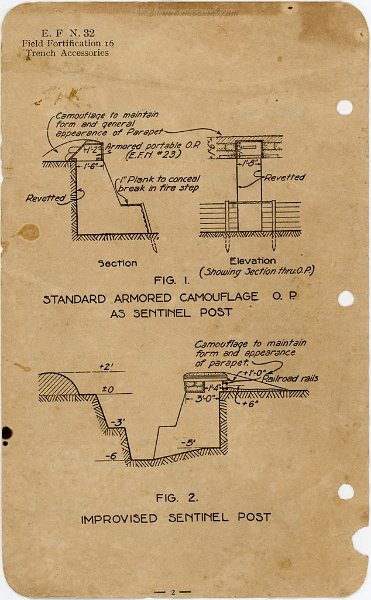 E. F N. 32
Field Fortification 16
Trench Accessories
Camouflage to maintain
form and general
appearance of Parapet
Armored portable O.P.
(E.F.N. #23)
1'-2"
1'-6"
1" Plank to conceal
break in fire step
Revetted
Section
1'-8"
Revetted
Elevation
(Showing Section thru.O.P.)
FIG. 1.
STANDARD ARMORED CAMOUFLAGE O. P.
AS SENTINEL POST
Camouflage to maintain
form and appearance
of parapet.
+2'
+1'-0"
Railroad rails
±0
1'-4"
3'-0"
+6"
-3'
-5'
-6
FIG. 2.
IMPROVISED SENTINEL POST
— 2 —